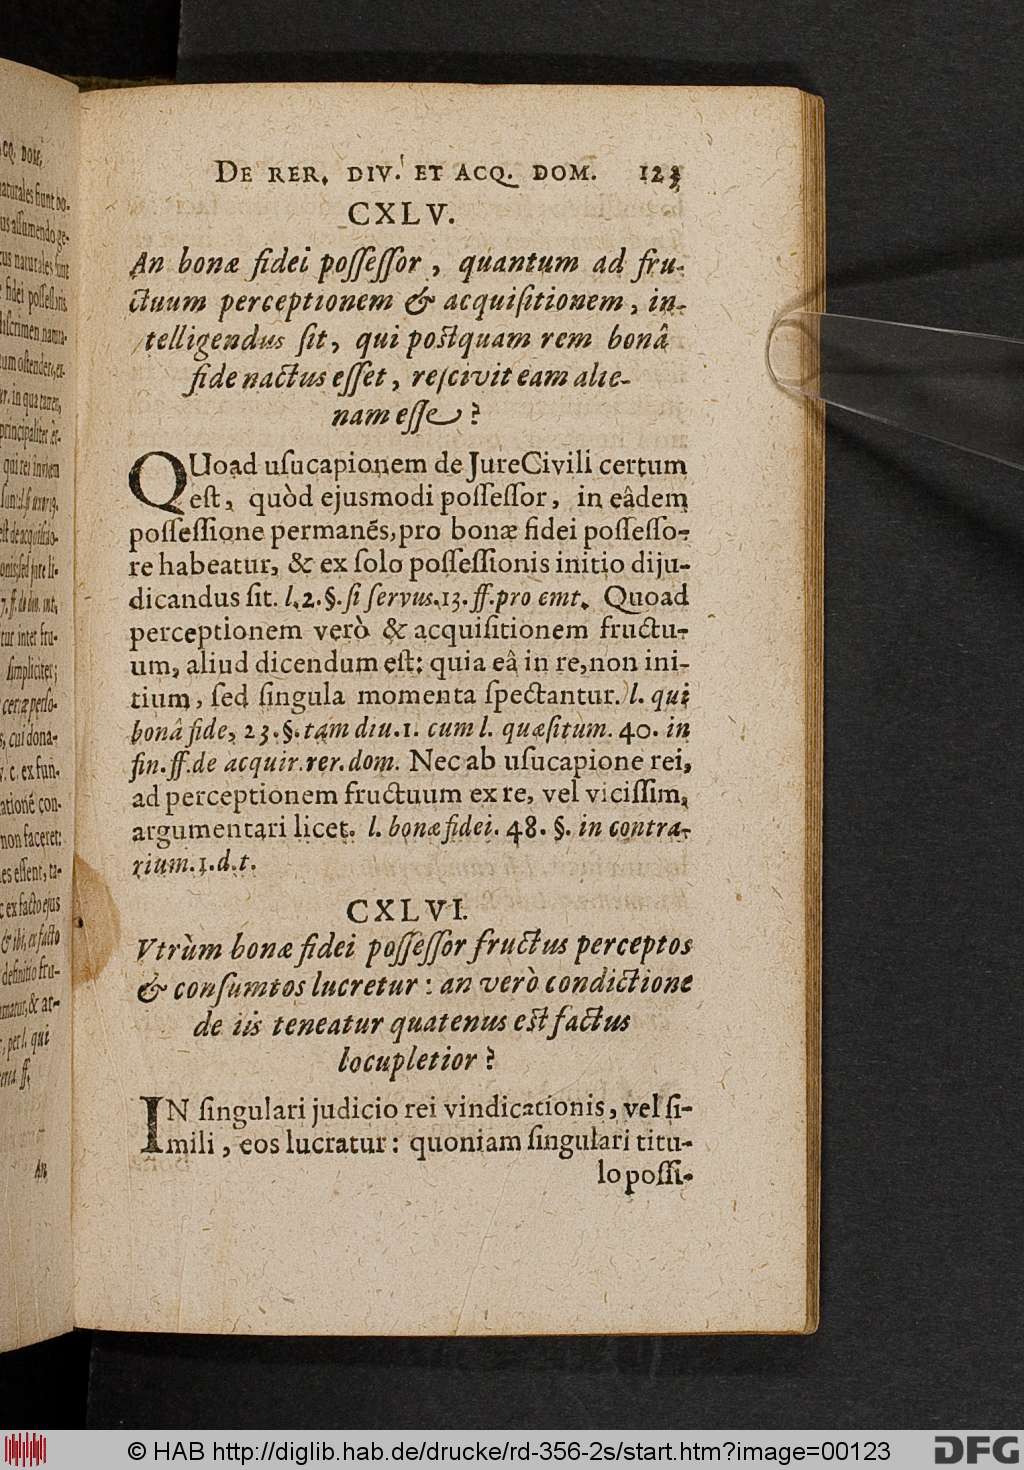 DE RER. DIV. ET ACQ. DOM. 123
CXLV.
An bonæ fidei poſſeſſor, quantum ad fru-
ctuum perceptionem & acquiſitionem, in-
telligendus ſit, qui postquam rem bonâ
fide nactus eſſet, reſcivit eam alie-
nam eſſe?
QUoad uſucapionem de Jure Civili certum
eſt, quòd ejusmodi poſſeſſor, in eâdem
poſſeſſione permanẽs, pro bonæ fidei poſſeſſo-
re habeatur, & ex ſolo poſſeſſionis initio diju-
dicandus ſit. l. 2. §. ſi ſervus. 13. ff. pro emt. Quoad
perceptionem verò & acquiſitionem fructu-
um, aliud dicendum eſt: quia eâ in re, non ini-
tium, ſed ſingula momenta ſpectantur. l. qui
bonâ fide, 23. §. tam diu. 1. cum l. quæſitum. 40. in
fin. ff. de acquir. rer. dom. Nec ab uſucapione rei,
ad perceptionem fructuum ex re, vel viciſſim,
argumentari licet. l. bonæ fidei. 48. §. in contra-
rium. 1. d. t.
CXLVI.
Vtrùm bonæ fidei poſſeſſor fructus perceptos
& conſumtos lucretur: an verò condictione
de iis teneatur quatenus eſt factus
locupletior?
IN ſingulari judicio rei vindicationis, vel ſi-
mili, eos lucratur: quoniam ſingulari titu-
lo poſſi-
© HAB http://diglib.hab.de/drucke/rd-356-2s/start.htm?image=00123
DFG